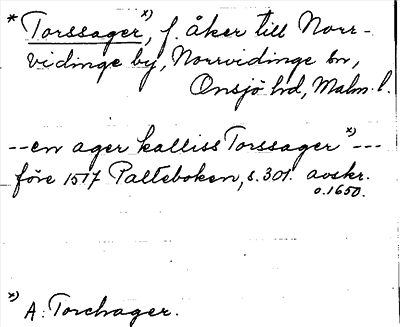 * Torssager*), f. åker till Norr-
vidinge by, Norrvidinge sn,
Onsjö hd, Malm. l.
--en ager kalliss Torssager*)---
före 1517 Palteboken, s. 301. avskr.
o. 1650.
*) A: Torchager.